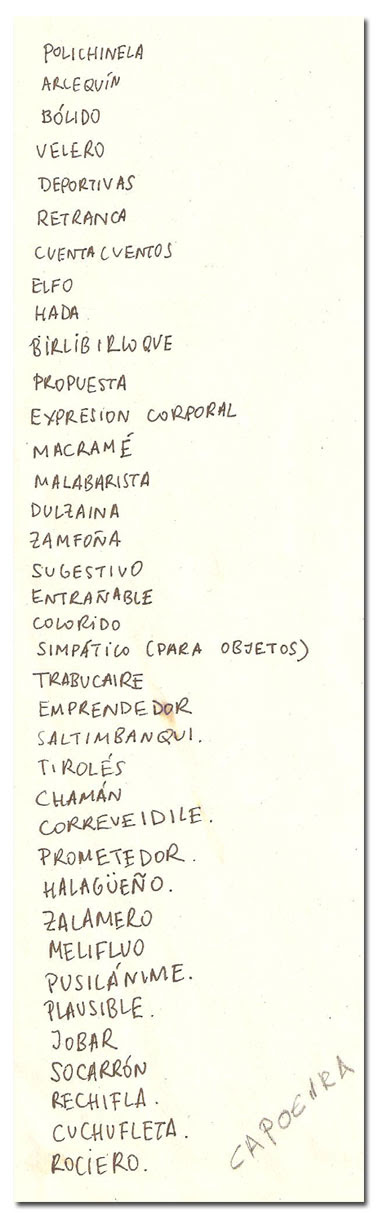 POLICHINELA
ARLEQUÍN
BÓLIDO
VELERO
DEPORTIVAS
RETRANCA
CUENTACUENTOS
ELFO
HADA
BIRLIBIRLOQUE
PROPUESTA
EXPRESION CORPORAL
MACRAMÉ
MALABARISTA
DULZAINA
ZAMFOÑA
SUGESTIVO
ENTRAÑABLE
COLORIDO
SIMPÁTICO (PARA OBJETOS)
TRABUCAIRE
EMPRENDEDOR
SALTIMBANQUI.
TIROLÉS
CHAMÁN
CORREVEIDILE.
PROMETEDOR.
HALAGÜEÑO.
ZALAMERO
MELIFLUO
PUSILÁNIME.
PLAUSIBLE.
JOBAR
SOCARRÓN
RECHIFLA.
CUCHUFLETA.
ROCIERO.
CAPOEIRA